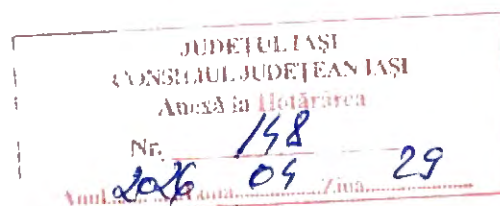 JUDEȚUL IAȘI
CONSILIUL JUDEȚEAN IAȘI
Anexă la Hotărârea
Nr. 148
Anul 2026 Luna 04 Ziua 29